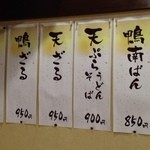 鴨南ばん
850円
天ぷらうどん
そば
900円
天ざる
950円
鴨ざる
950円